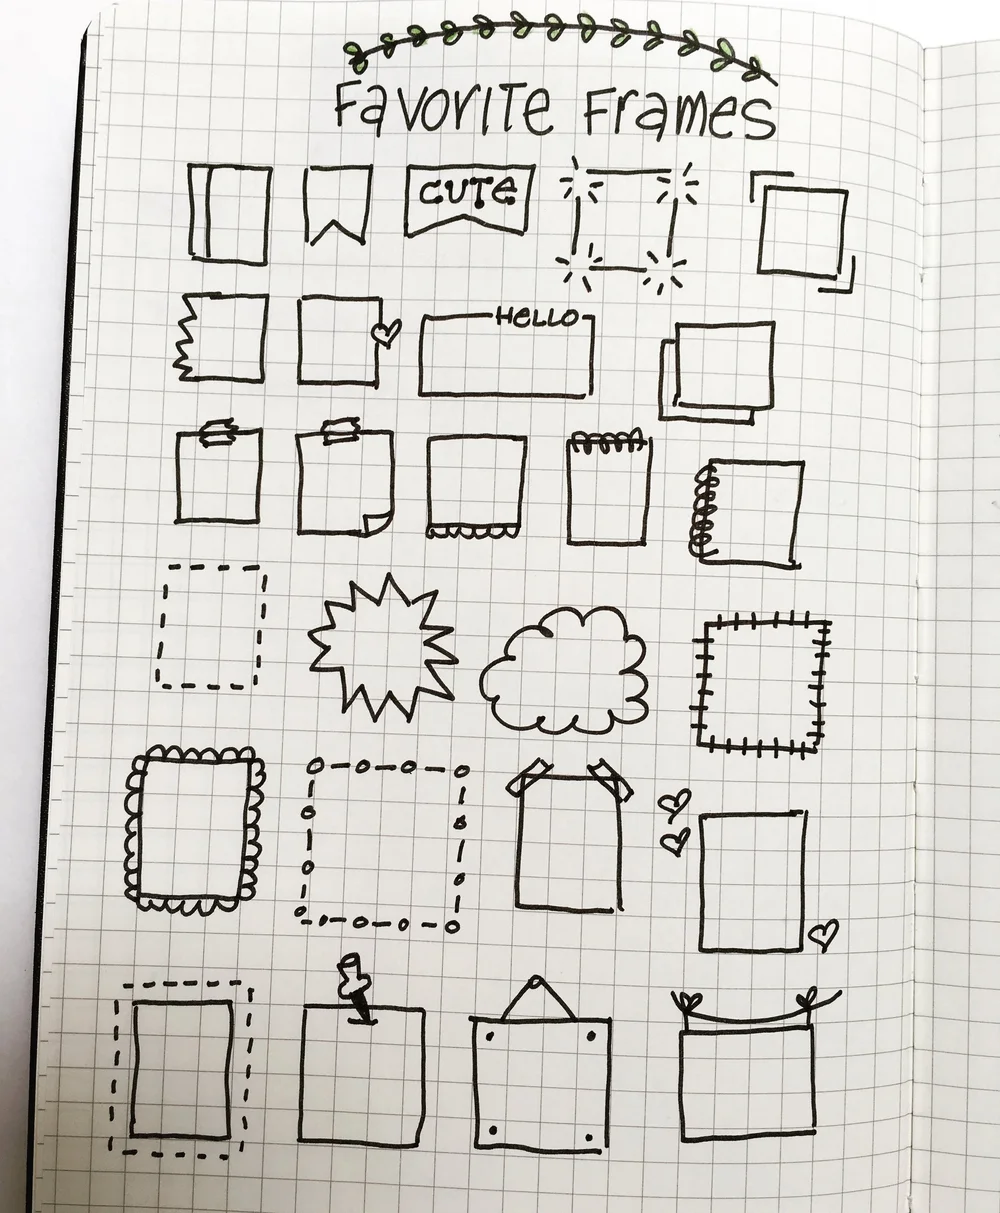 Favorite Frames
CUTE
HELLO